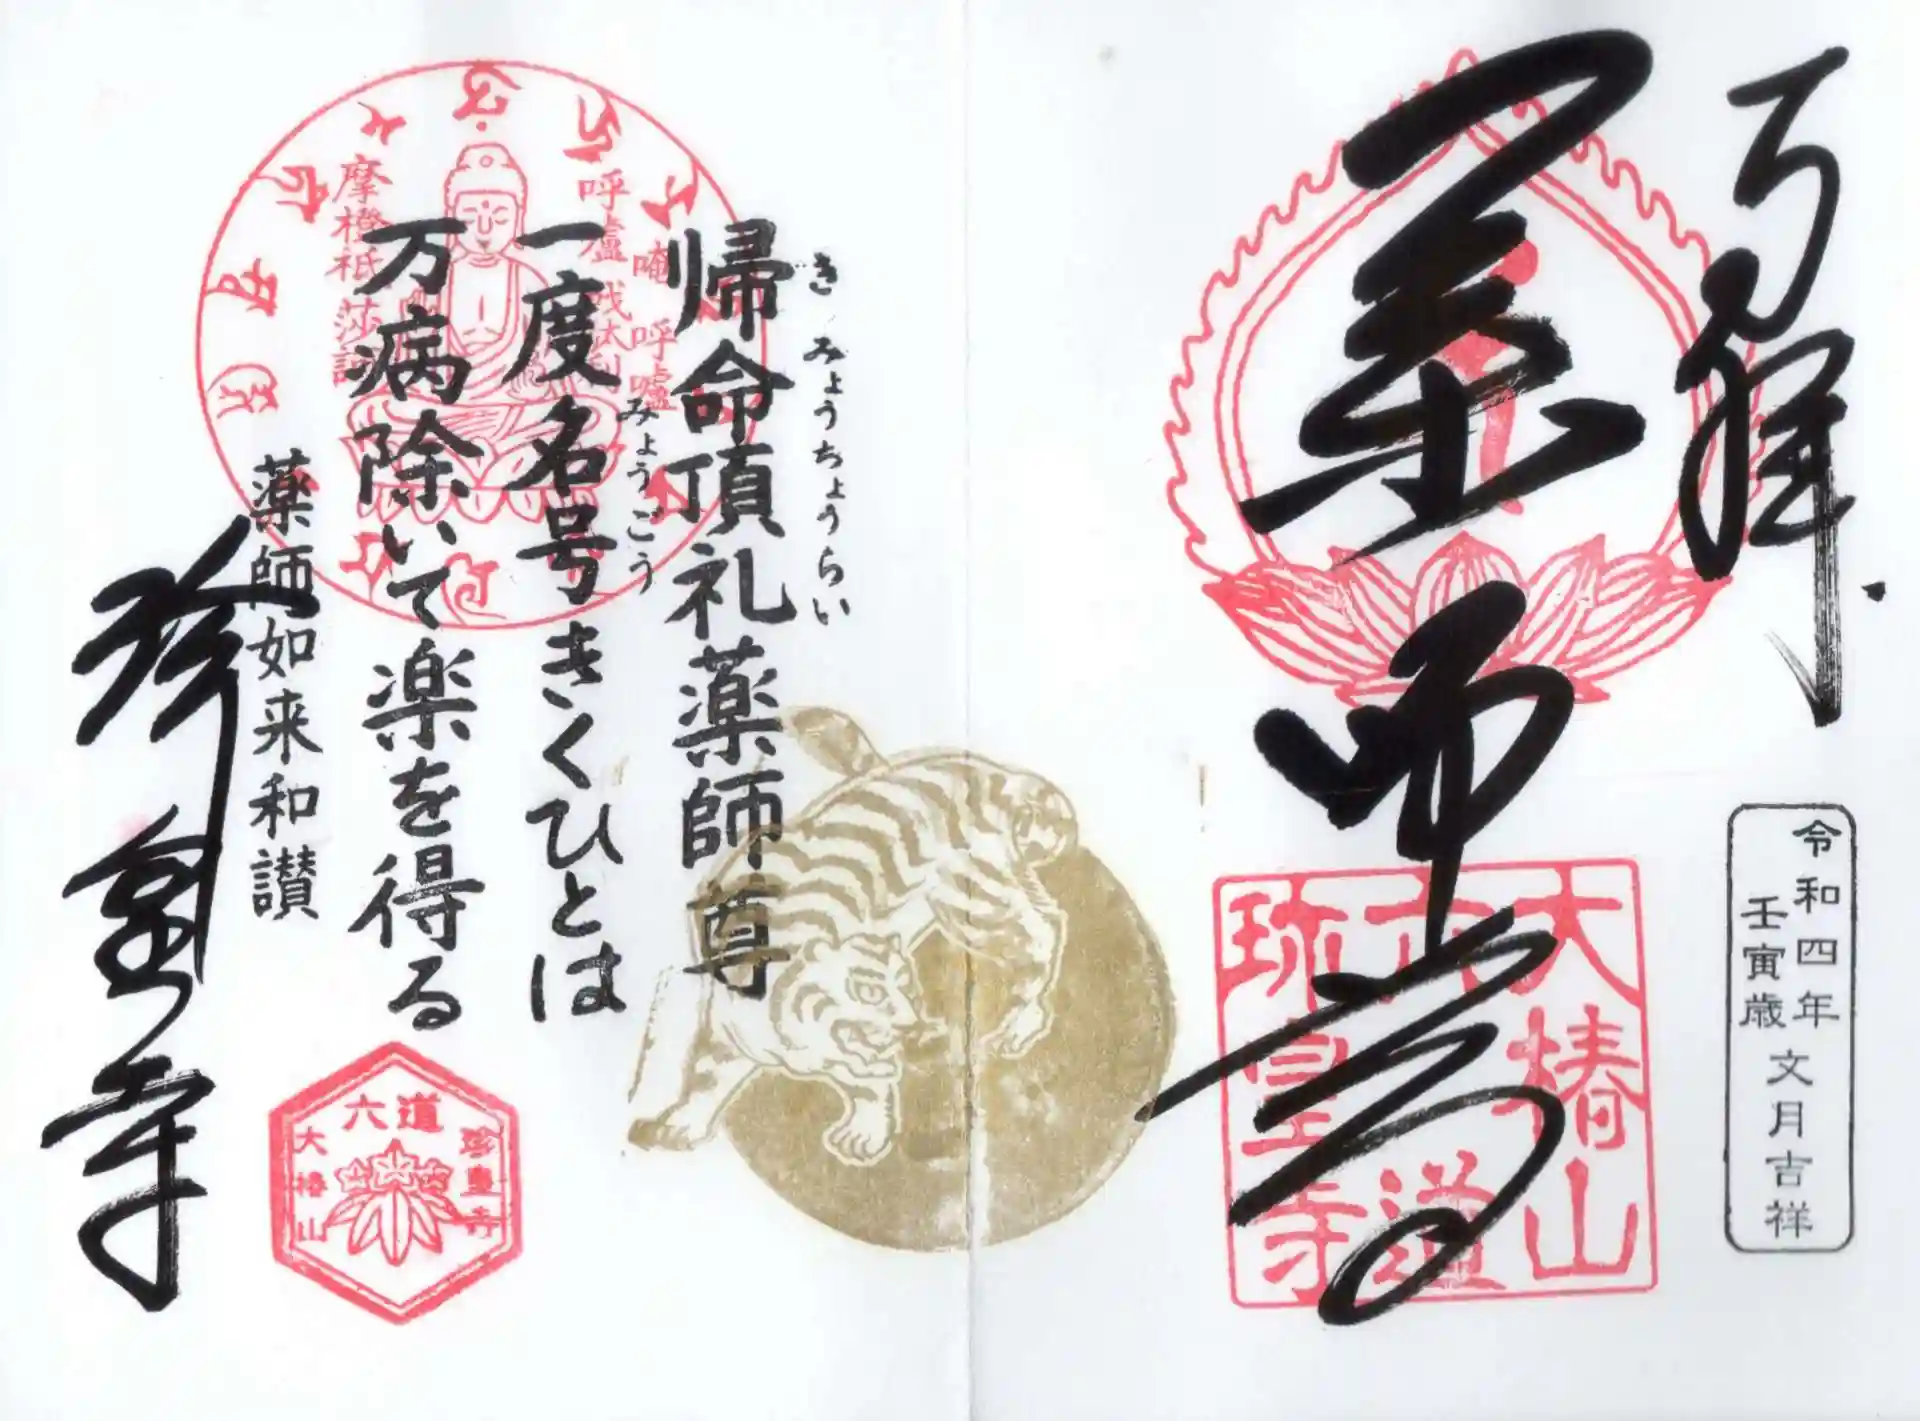 奉拝
薬師尊
大椿山
六道
珎皇寺
令和四年
壬寅歳
文月吉祥
帰命頂礼薬師尊
き みょうちょうらい
一度名号きくひとは
みょうごう
万病除いて楽を得る
薬師如来和讃
珎皇寺
唵 呼嚧
呼嚧 戦駄利
摩橙祇 莎訶
六道
珍皇寺
大椿山